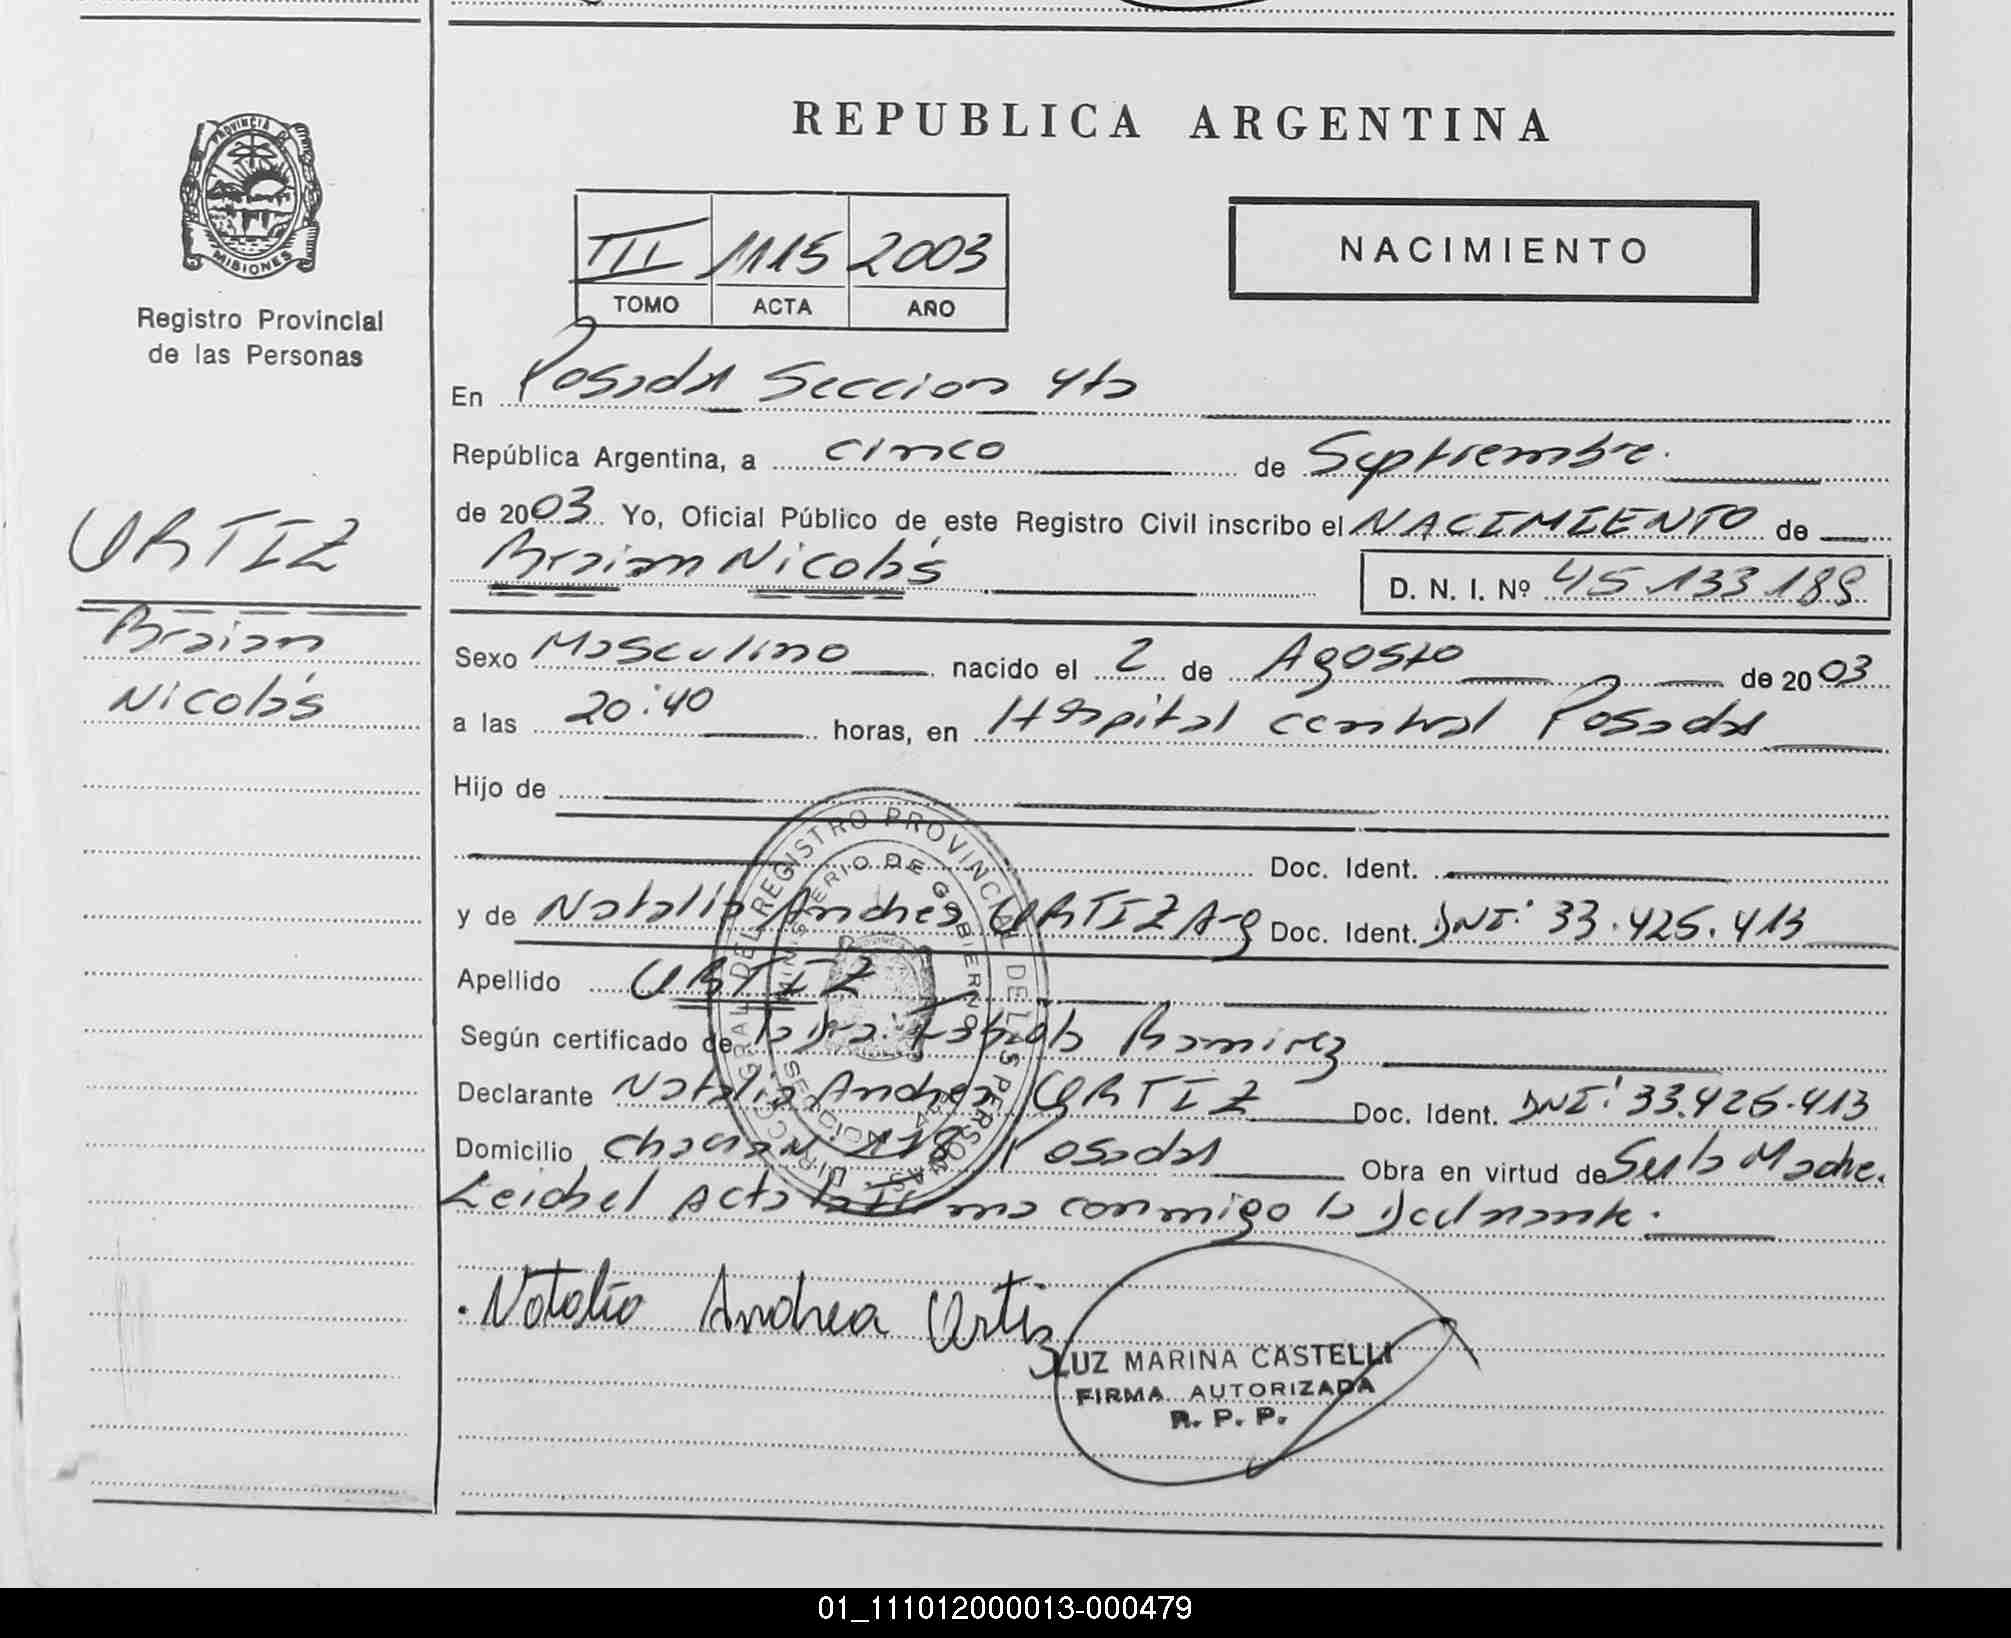 REPUBLICA ARGENTINA
PROVINCIA DE
MISIONES
Registro Provincial
de las Personas
III 1115 2003
TOMO ACTA AÑO
NACIMIENTO
En Posadas Seccion 4ta
República Argentina, a cinco de Septiembre.
de 2003. Yo, Oficial Público de este Registro Civil inscribo el NACIMIENTO de
Braian Nicolás D. N. I. Nº 45.133.189
URTIZ
Braian
Nicolás
Sexo Masculino nacido el 2 de Agosto de 2003
a las 20:40 horas, en Hospital central Posadas
Hijo de
Doc. Ident.
y de Natalia Andrea URTIZ Arg Doc. Ident. DNI: 33.425.413
Apellido URTIZ
Según certificado de la Dra. Ramirez
Declarante Natalia Andrea URTIZ Doc. Ident. DNI: 33.425.413
Domicilio 178 Posadas Obra en virtud de Ser la Madre.
Leida el Acta la firma conmigo la Declarante.
Natalia Andrea Urtiz
LUZ MARINA CASTELLI
FIRMA AUTORIZADA
R. P. P.
DEL REGISTRO PROVINCIAL DE LAS PERSONAS
MINISTERIO DE GOBIERNO
01_111012000013-000479